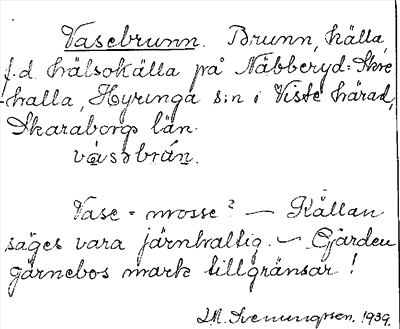 Vasebrunn. Brunn, källa,
f.d. hälsokälla på Näbberyd: Skre-
-halla, Hyringa s:n i Viste härad,
Skaraborgs län.
våsəbrán.
Vase = mosse? — Källan
säges vara järnhaltig. — Gärden
gärnebos mark tillgränsar!
1939.